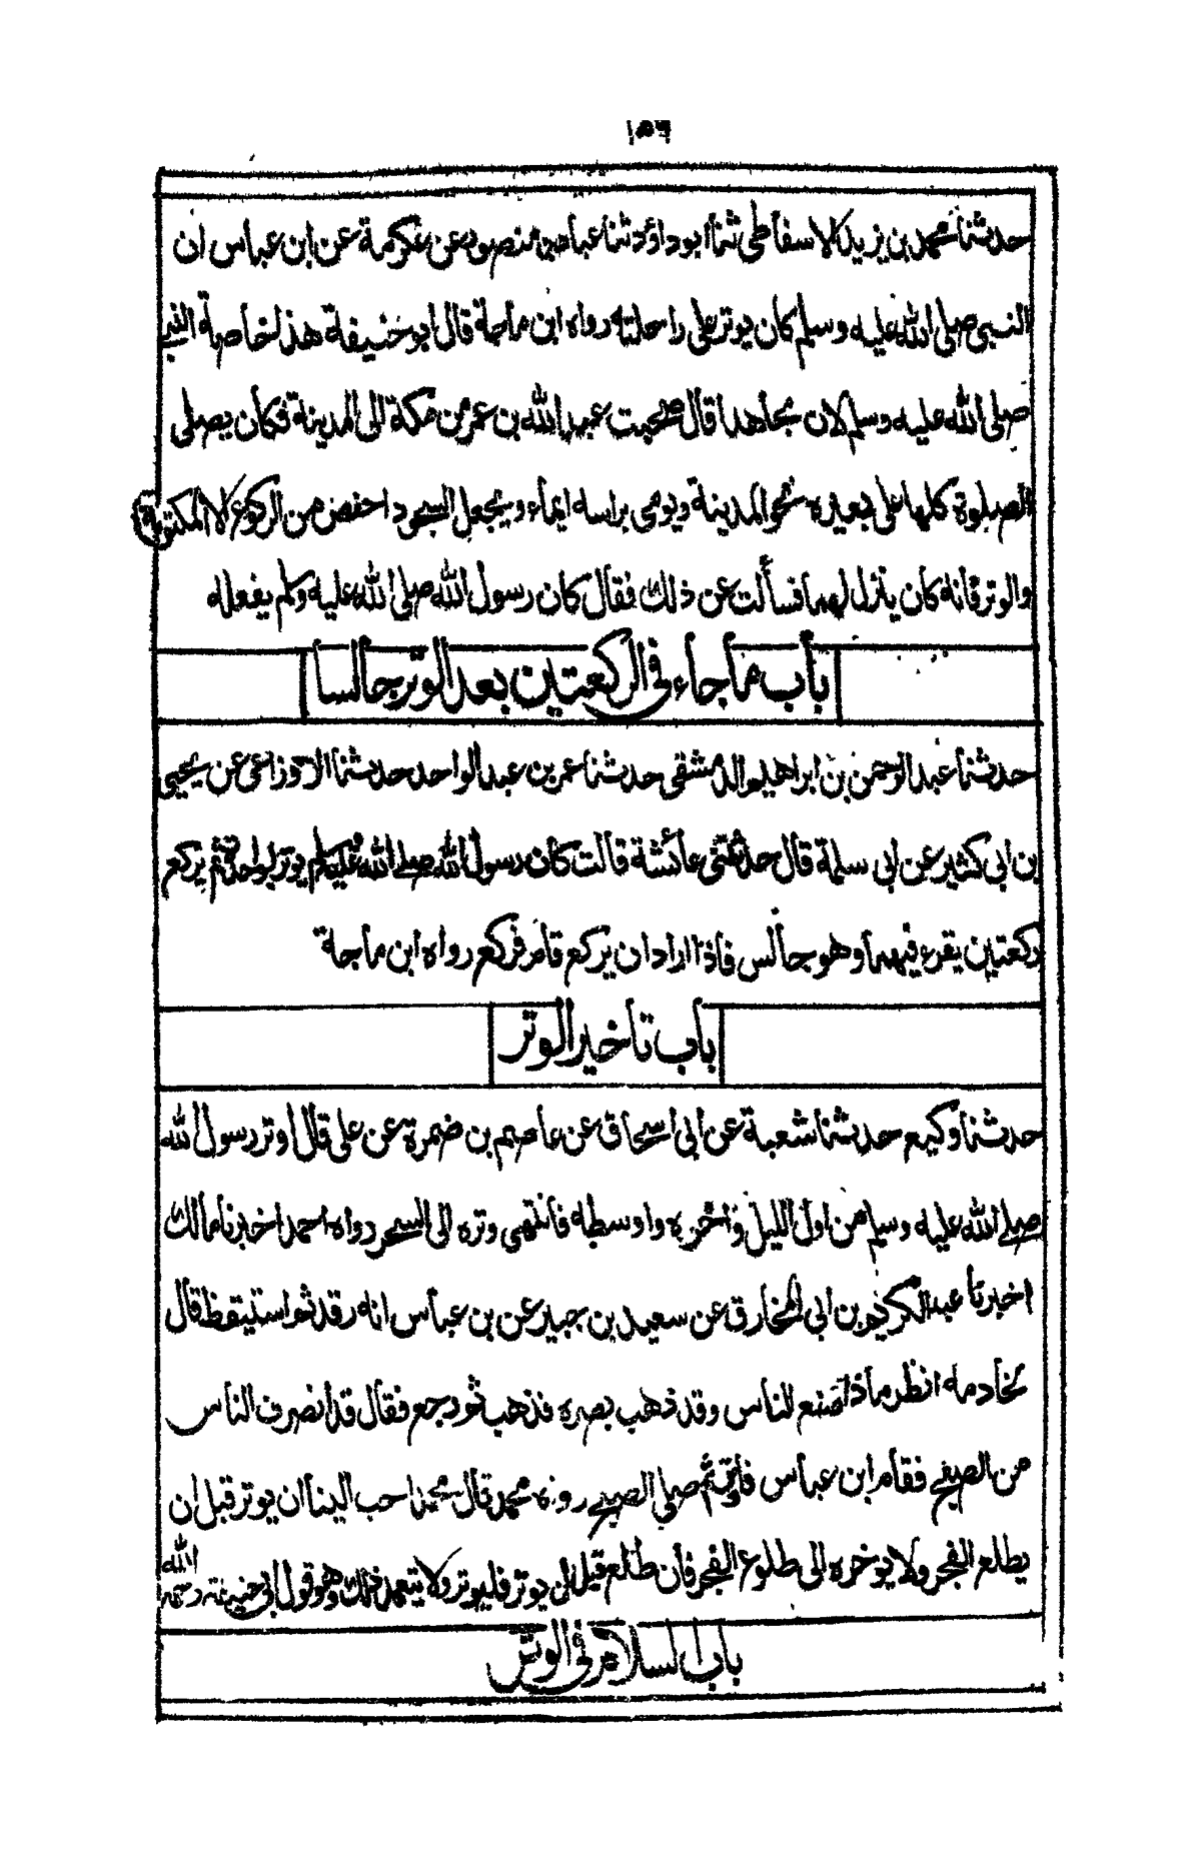 ١٥٦
حدثنا محمد بن يزيد الاسفاطى ثنا ابو داؤد ثنا عباد بن منصور عن عكرمة عن ابن عباس ان
النبى صلى الله عليه وسلم كان يوتر على راحلته رواه ابن ماجة قال ابو حنيفة هذا خاصة النبى
صلى الله عليه وسلم لان مجاهدا قال صحبت عبد الله بن عمر من مكة الى المدينة فكان يصلى
الصلوة كلها على بعيره نحو المدينة ويومى براسه ايماء ويجعل السجود اخفض من الركوع الا المكتوبة
والوتر فانه كان ينزل لهما فسألت عن ذلك فقال كان رسول الله صلى الله عليه وسلم يفعله
باب ما جاء فى الركعتين بعد الوتر جالسا
حدثنا عبد الرحمن بن ابراهيم الدمشقى حدثنا عمر بن عبد الواحد حدثنا الاوزاعى عن يحيى
بن ابى كثير عن ابى سلمة قال حدثتنى عائشة قالت كان رسول الله صلے الله عليه وسلم يوتر بواحدة ثم يركع
ركعتين يقرء فيهما وهو جالس فاذا اراد ان يركع قام فركع رواه ابن ماجة
باب تاخير الوتر
حدثنا وكيع حدثنا شعبة عن ابى اسحاق عن عاصم بن ضمرة عن على قال اوتر رسول الله
صلے الله عليه وسلم من اول الليل واخره واوسطه فانتهى وتره الى السحر رواه احمد اخبرنا مالك
اخبرنا عبد الكريم بن ابى المخارق عن سعيد بن جبير عن بن عباس انه رقد ثم استيقظ قال
لخادمه انظر ماذا صنع للناس وقد ذهب بصره فذهب ثم رجع فقال قد انصرف الناس
من الصبح فقام ابن عباس فاوتر ثم صلى الصبح رواه محمد قال محمد احب الينا ان يوتر قبل ان
يطلع الفجر ولا يوخره الى طلوع الفجر فان طلع قبل ان يوتر فليوتر ولا يتعمد ذلك وهو قول ابى حنيفة رحمه الله
باب السلام فى الوتر